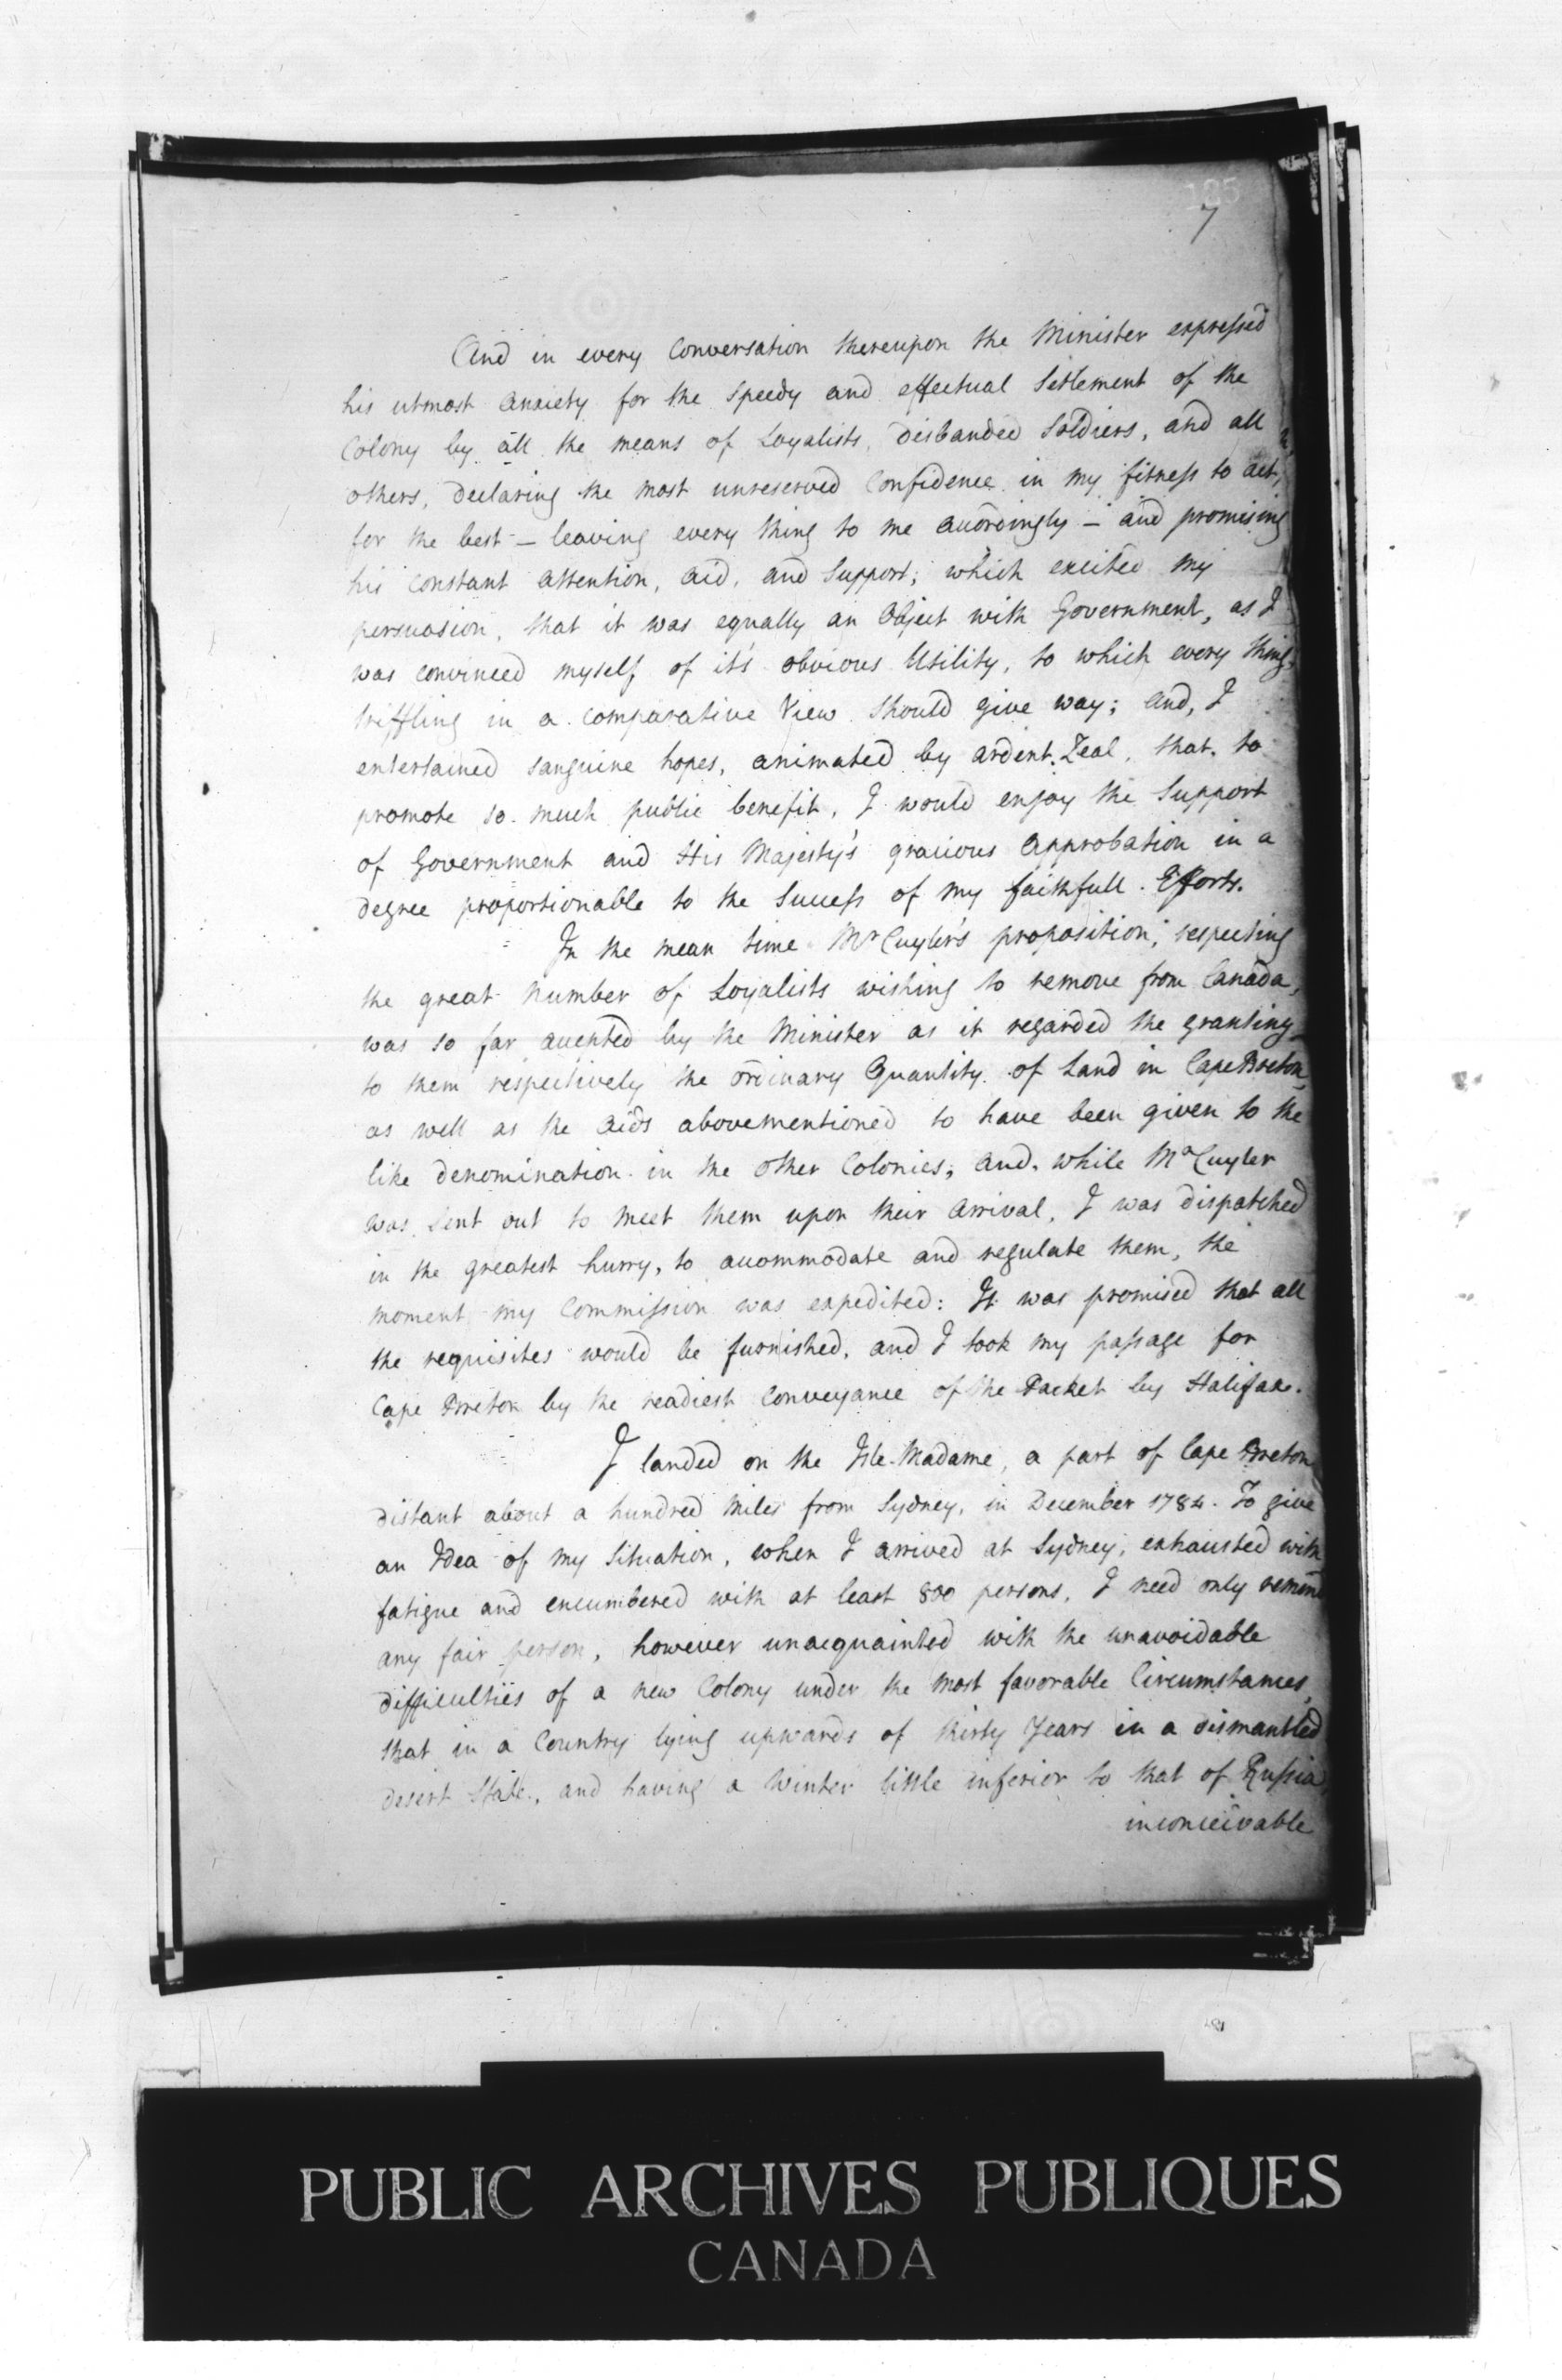 125
7
And in every Conversation thereupon the Minister expressed
his utmost Anxiety for the Speedy and effectual Settlement of the
Colony by all the means of Loyalists, Disbanded Soldiers, and all
others, Declaring the most unreserved Confidence in my fitness to act,
for the best – leaving every thing to me Accordingly – and promising
his constant Attention, Aid, and Support; which excited my
persuasion, that it was equally an Object with Government, as I
was convinced myself of it's obvious Utility, to which every thing
triffling in a comparative View should give way; And, I
entertained sanguine hopes, animated by ardent Zeal, that, to
promote so much public benefit, I would enjoy the Support
of Government and His Majesty's gracious Approbation in a
Degree proportionable to the Success of my faithfull Efforts.
In the mean time Mr Cuyler's proposition, respecting
the great Number of Loyalists wishing to remove from Canada,
was so far Accepted by the Minister as it regarded the granting
to them respectively the Ordinary Quantity of Land in Cape Breton
as well as the Aids abovementioned to have been given to the
like denomination in the other Colonies; And, while Mr Cuyler
was sent out to meet them upon their Arrival, I was Dispatched
in the greatest hurry, to accommodate and regulate them, the
moment my Commission was expedited: It was promised that all
the requisites would be furnished, and I took my passage for
Cape Breton by the readiest Conveyance of the Packet by Halifax.
I landed on the Isle-Madame, a part of Cape Breton
Distant about a hundred Miles from Sydney, in December 1784. To give
an Idea of my Situation, when I arrived at Sydney, exhausted with
fatigue and encumbered with at least 800 persons, I need only remind
any fair person, however unacquainted with the unavoidable
Difficulties of a new Colony under the most favorable Circumstances,
that in a Country lying upwards of thirty Years in a Dismantled
Desert State, and having a Winter little inferior to that of Russia,
inconceivable
PUBLIC ARCHIVES PUBLIQUES
CANADA